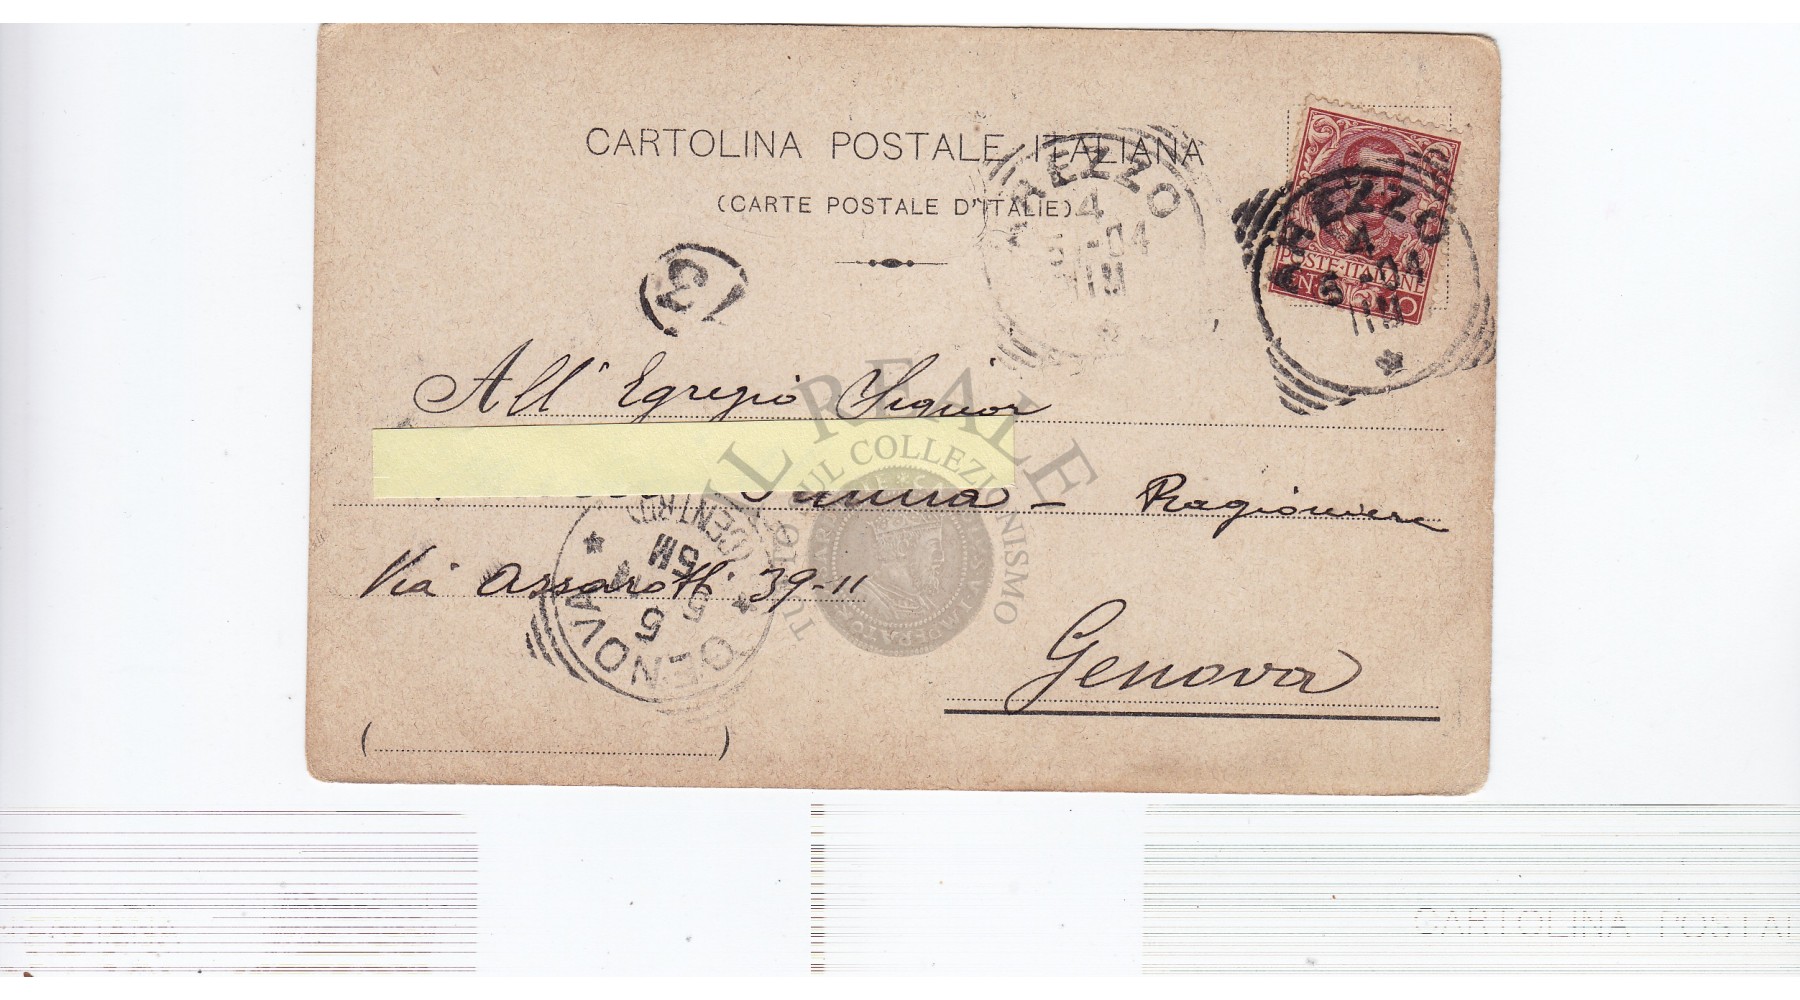 CARTOLINA POSTALE ITALIANA
(CARTE POSTALE D'ITALIE)
AREZZO
4
5 -04
11M
POSTE·ITALIANE
AREZZO
4
5 -04
11M
All' Egregio Signor
Ragioniere
Via Assarotti 39-11
Genova
GENOVA
5 5
5M
(CENTRO)
IL REALE
TUTTO SUL COLLEZIONISMO
CARTOLINA POSTA